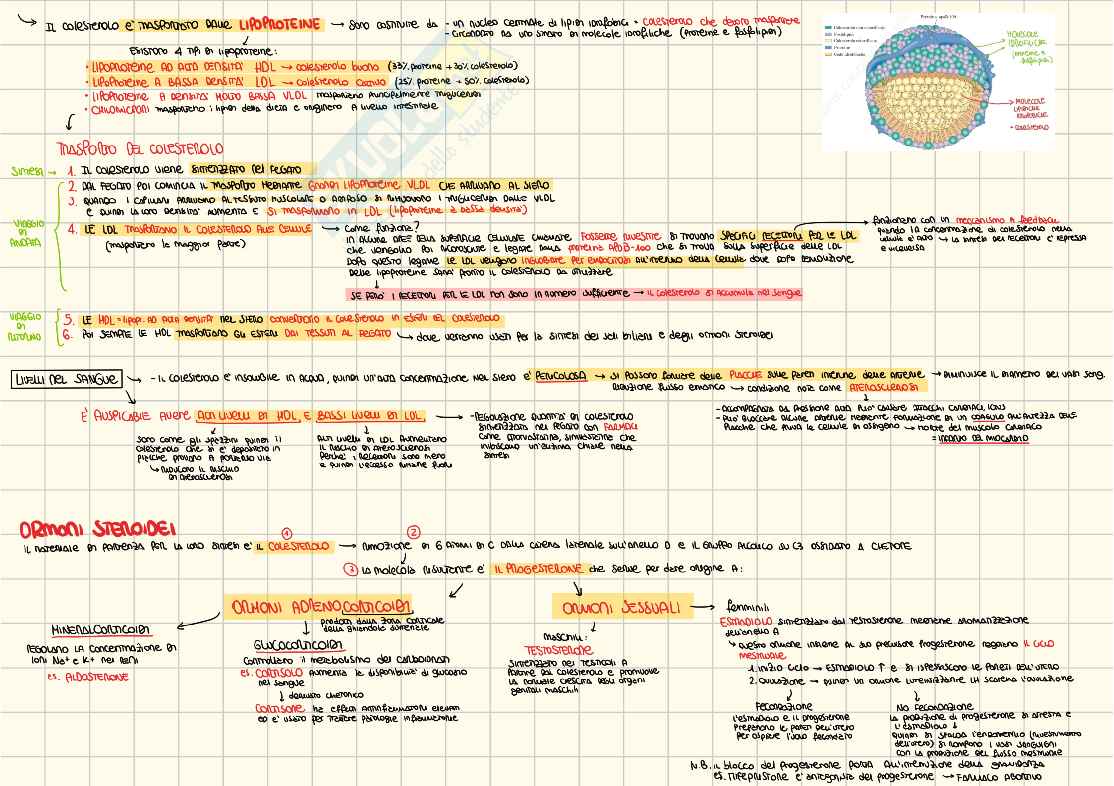 IL COLESTEROLO E' TRASPORTATO DALLE LIPOPROTEINE → SONO COSTITUITE DA - UN NUCLEO CENTRALE DI LIPIDI IDROFOBICI + COLESTEROLO CHE DEVONO TRASPORTARE
- CIRCONDATO DA UNO STRATO DI MOLECOLE IDROFILICHE (PROTEINE E FOSFOLIPIDI)
ESISTONO 4 TIPI DI LIPOPROTEINE:
• LIPOPROTEINE AD ALTA DENSITA' HDL → COLESTEROLO BUONO (33% PROTEINE + 30% COLESTEROLO)
• LIPOPROTEINE A BASSA DENSITA' LDL → COLESTEROLO CATTIVO (25% PROTEINE + 50% COLESTEROLO)
• LIPOPROTEINE A DENSITA' MOLTO BASSA VLDL TRASPORTANO PRINCIPALMENTE TRIGLICERIDI
• CHILOMICRONI TRASPORTANO I LIPIDI DELLA DIETA E ORIGINANO A LIVELLO INTESTINALE
MOLECOLE IDROFILICHE (PROTEINE E FOSFOLIPIDI)
MOLECOLE LIPIDICHE IDROFOBICHE + COLESTEROLO
TRASPORTO DEL COLESTEROLO
SINTESI → 1. IL COLESTEROLO VIENE SINTETIZZATO NEL FEGATO
VIAGGIO DI ANDATA
2. DAL FEGATO POI COMINCIA IL TRASPORTO MEDIANTE GRANDI LIPOPROTEINE VLDL CHE ARRIVANO AL SIERO
3. QUANDO I CAPILLARI ARRIVANO AL TESSUTO MUSCOLARE O ADIPOSO SI RIMUOVONO I TRIGLICERIDI DALLE VLDL
E QUINDI LA LORO DENSITA' AUMENTA E SI TRASFORMANO IN LDL (LIPOPROTEINE A BASSA DENSITA')
4. LE LDL TRASPORTANO IL COLESTEROLO ALLE CELLULE → COME FUNZIONA?
(TRASPORTANO LA MAGGIOR PARTE)
IN ALCUNE AREE DELLA SUPERFICIE CELLULARE CHIAMATE FOSSETTE RIVESTITE SI TROVANO SPECIFICI RECETTORI PER LE LDL
CHE VENGOLNO POI RICONOSCIUTE E LEGATE DALLA PROTEINA APOB-100 CHE SI TROVA SULLA SUPERFICIE DELLE LDL
DOPO QUESTO LEGAME LE LDL VENGONO INGLOBATE PER ENDOCITOSI ALL'INTERNO DELLA CELLULA DOVE DOPO DEMOLIZIONE
DELLE LIPOPROTEINE SARA' PRONTO IL COLESTEROLO DA UTILIZZARE
FUNZIONANO CON UN MECCANISMO A FEEDBACK
QUANDO LA CONCENTRAZIONE DI COLESTEROLO NELLA
CELLULA E' ALTO → LA SINTESI DEI RECETTORI E' REPRESSA
E VICEVERSA
SE PERO' I RECETTORI PER LE LDL NON SONO IN NUMERO SUFFICIENTE → IL COLESTEROLO SI ACCUMULA NEL SANGUE
VIAGGIO DI RITORNO
5. LE HDL = LIPOP. AD ALTA DENSITA' NEL SIERO CONVERTONO IL COLESTEROLO IN ESTERI DEL COLESTEROLO
6. POI SEMPRE LE HDL TRASPORTANO GLI ESTERI DAI TESSUTI AL FEGATO → DOVE VERRANNO USATI PER LA SINTESI DEI SALI BILIARI E DEGLI ORMONI STEROIDEI
LIVELLI NEL SANGUE → - IL COLESTEROLO E' INSOLUBILE IN ACQUA, QUINDI UN'ALTA CONCENTRAZIONE NEL SIERO E' PERICOLOSA → SI POSSONO FORMARE DELLE PLACCHE SULLE PARETI INTERNE DELLE ARTERIE → DIMINUISCE IL DIAMETRO DEI VASI SANG.
RIDUZIONE FLUSSO EMATICO → CONDIZIONE NOTA COME ATEROSCLEROSI
- ACCOMPAGNATA DA PRESSIONE ALTA PUO' CAUSARE ATTACCHI CARDIACI, ICTUS
- PUO' BLOCCARE ALCUNE ARTERIE MEDIANTE FORMAZIONE DI UN COAGULO ALL'ALTEZZA DELLE
PLACCHE CHE PRIVA LE CELLULE DI OSSIGENO → MORTE DEL MUSCOLO CARDIACO
= INFARTO DEL MIOCARDIO
E' AUSPICABILE AVERE ALTI LIVELLI DI HDL E BASSI LIVELLI DI LDL
SONO COME GLI SPAZZINI QUINDI IL
COLESTEROLO CHE SI E' DEPOSITATO IN
PLACCHE PROVANO A PORTARLO VIA
↳ RIDUCONO IL RISCHIO
DI ATEROSCLEROSI
ALTI LIVELLI DI LDL AUMENTANO
IL RISCHIO DI ATEROSCLEROSI
PERCHE' I RECETTORI SONO MENO
E QUINDI L'ECCESSO RIMANE FUORI
- REGOLAZIONE QUANTITA' DI COLESTEROLO
SINTETIZZATO NEL FEGATO CON FARMACI
COME ATORVASTATINA, SIMVASTATINA CHE
INIBISCONO UN'ENZIMA CHIAVE NELLA
SINTESI
ORMONI STEROIDEI
IL MATERIALE DI PARTENZA PER LA LORO SINTESI E' IL ① COLESTEROLO → ② RIMOZIONE DI 6 ATOMI DI C DALLA CATENA LATERALE SULL'ANELLO D E IL GRUPPO ALCOLICO SU C3 OSSIDATO A CHETONE
③ LA MOLECOLA RISULTANTE E' IL PROGESTERONE CHE SERVE PER DARE ORIGINE A:
ORMONI ADRENOCORTICOIDI
PRODOTTI DALLA ZONA CORTICALE
DELLA GHIANDOLA SURRENALE
MINERALCORTICOIDI
REGOLANO LA CONCENTRAZIONE DI
IONI Na+ E K+ NEI RENI
ES. ALDOSTERONE
GLUCOCORTICOIDI
CONTROLLANO IL METABOLISMO DEI CARBOIDRATI
ES. CORTISOLO AUMENTA LA DISPONIBILITA' DI GLUCOSIO
NEL SANGUE
↓ DERIVATO CHETONICO
CORTISONE HA EFFETTI ANTINFIAMMATORI ELEVATI
ED E' USATO PER TRATTARE PATOLOGIE INFIAMMATORIE
ORMONI SESSUALI → FEMMINILI
MASCHILI:
TESTOSTERONE
SINTETIZZATO NEI TESTICOLI A
PARTIRE DAL COLESTEROLO E PROMUOVE
LA NORMALE CRESCITA DEGLI ORGANI
GENITALI MASCHILI
ESTRADIOLO SINTETIZZATO DAL TESTOSTERONE MEDIANTE AROMATIZZAZIONE
DELL'ANELLO A
↳ QUESTO ORMONE INSIEME AL SUO PRECURSORE PROGESTERONE REGOLANO IL CICLO
MESTRUALE
1. INIZIO CICLO → ESTRADIOLO ↑ E SI ISPESSISCONO LE PARETI DELL'UTERO
2. OVULAZIONE → QUINDI UN ORMONE LUTEINIZZANTE LH SCATENA L'OVULAZIONE
FECONDAZIONE
L'ESTRADIOLO E IL PROGESTERONE
PREPARANO LE PARETI DELL'UTERO
PER OSPITARE L'UOVO FECONDATO
NO FECONDAZIONE
LA PRODUZIONE DI PROGESTERONE SI ARRESTA E
L'ESTRADIOLO ↓
QUINDI SI SFALDA L'ENDOMETRIO (RIVESTIMENTO
DELL'UTERO) SI ROMPONO I VASI SANGUIGNI
CON LA PRODUZIONE DEL FLUSSO MESTRUALE
N.B. IL BLOCCO DEL PROGESTERONE PORTA ALL'INTERRUZIONE DELLA GRAVIDANZA
ES. MIFEPRISTONE E' ANTAGONISTA DEL PROGESTERONE → FARMACO ABORTIVO